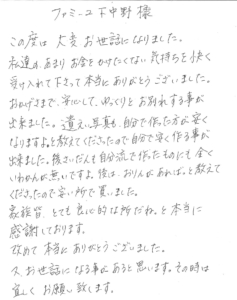 ファミーユ下中野 様
この度は大変お世話になりました。
私達の、あまりお金をかけたくない気持ちを快く
受け入れて下さって本当にありがとうございました。
おかげさまで、安心して、ゆっくりとお別れする事が
出来ました。遺え写真も自分で作った方が安く
なりますよ。と教えてくださったので自分で安く作る事が
出来ました。後さいだんも自分流で作ったものにも全く
いわかんが無いですよ。後は、おりんがあれば。と教えて
くださったので安い所で買いました。
家族皆、とても良心的な所だね。と本当に
感謝しております。
改めて本当にありがとうございました。
又お世話になる事があると思います。その時は
宜しくお願い致します。